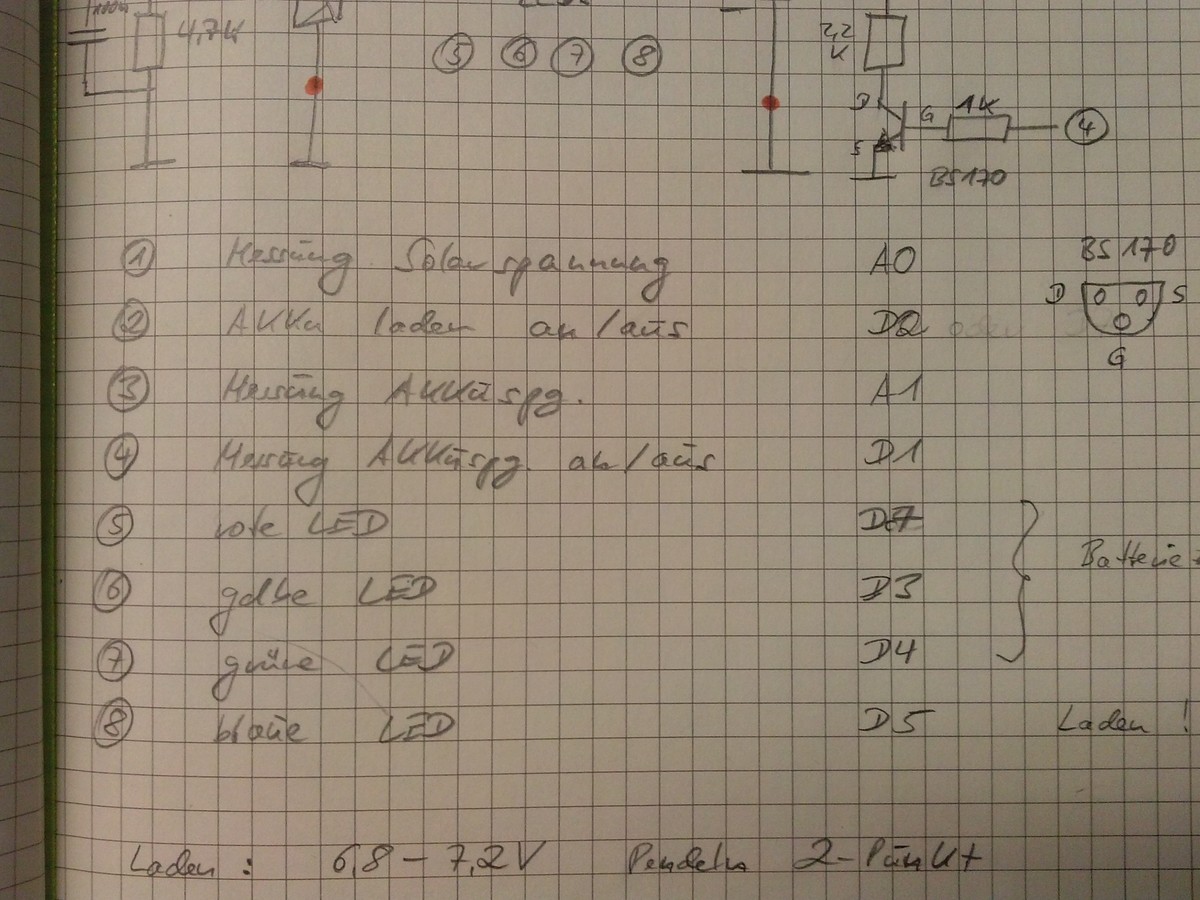 4,7K
5 6 7 8
2,2 K
D G 1K 4
S
BS170
1 Messung Solarspannung A0
BS170
2 Akku laden an/aus D2 oder
D S
G
3 Messung AKKuspg. A1
4 Messung AKKuspg. an/aus D1
5 rote LED D7
6 gelbe LED D3
Batterie
7 grüne LED D4
8 blaue LED D5 Laden !
Laden : 6,8 – 7,2V Pendeln 2-Punkt